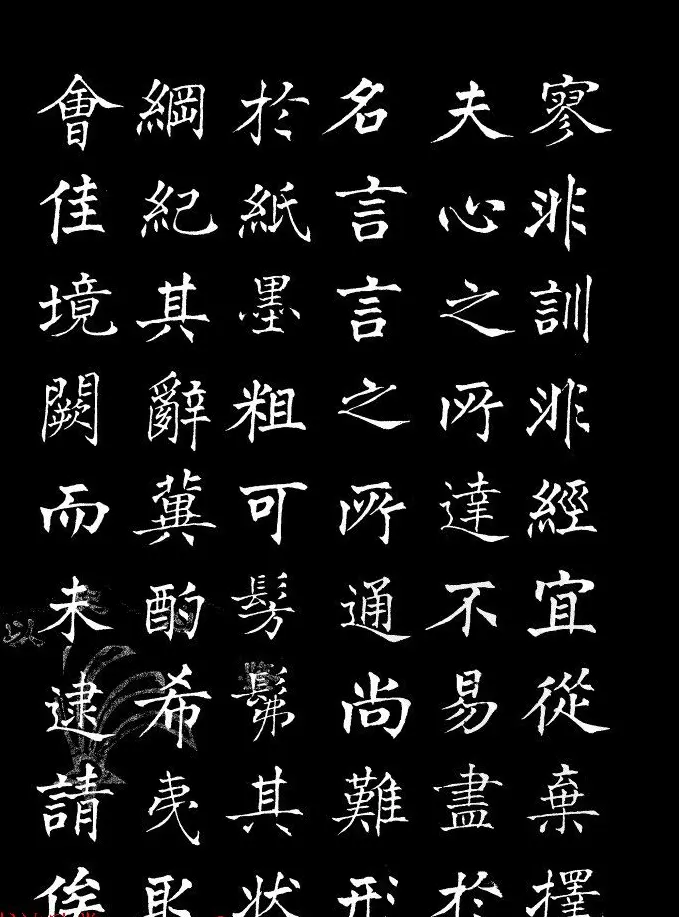 寥非訓非經宜從棄擇
夫心之所達不易盡於
名言言之所通尚難形
於紙墨粗可髣髴其狀
綱紀其辭冀酌希夷取
會佳境闕而未逮請俟